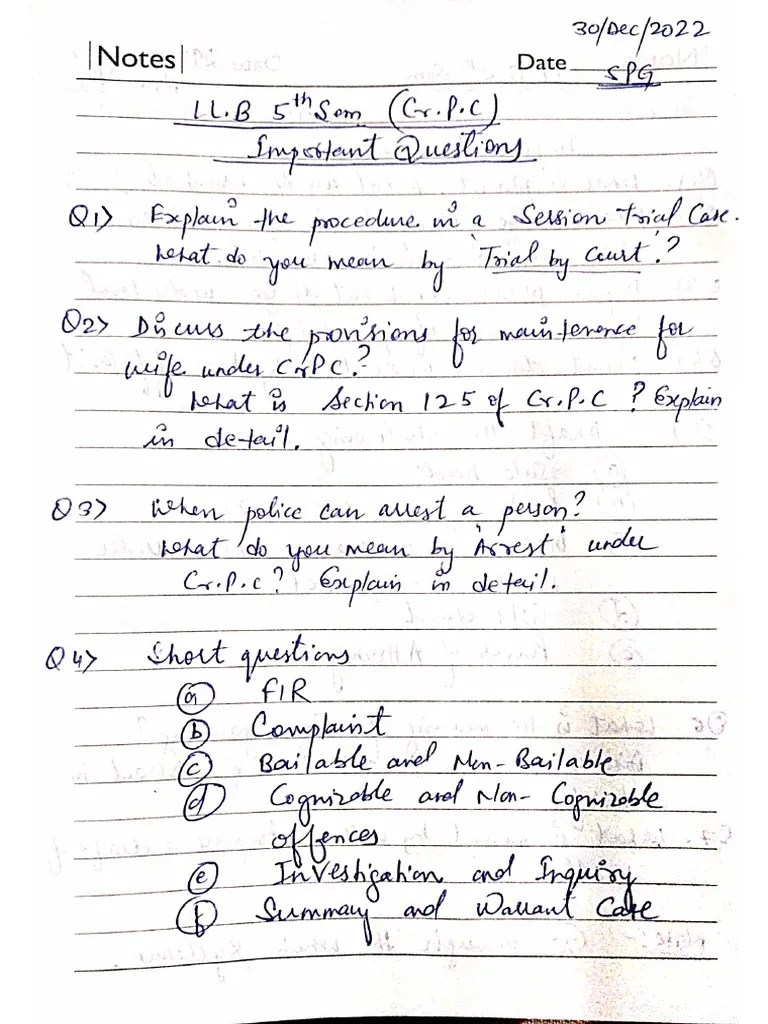 30/Dec/2022
|Notes| Date SPG
LL.B 5th Sem (Cr.P.C)
Important Questions
Q1> Explain the procedure in a Session Trial Case.
What do you mean by 'Trial by Court'?
Q2> Discuss the provisions for maintenence for
wife under CrPC?
What is Section 125 of Cr.P.C ? Explain
in detail.
Q3> When police can arrest a person?
What do you mean by 'Arrest' under
Cr.P.C? Explain in detail.
Q4> Short questions
(a) FIR
(b) Complaint
(c) Bailable and Non-Bailable
(d) Cognizable and Non-Cognizable
offences
(e) Investigation and Inquiry
(f) Summary and Warrant Case